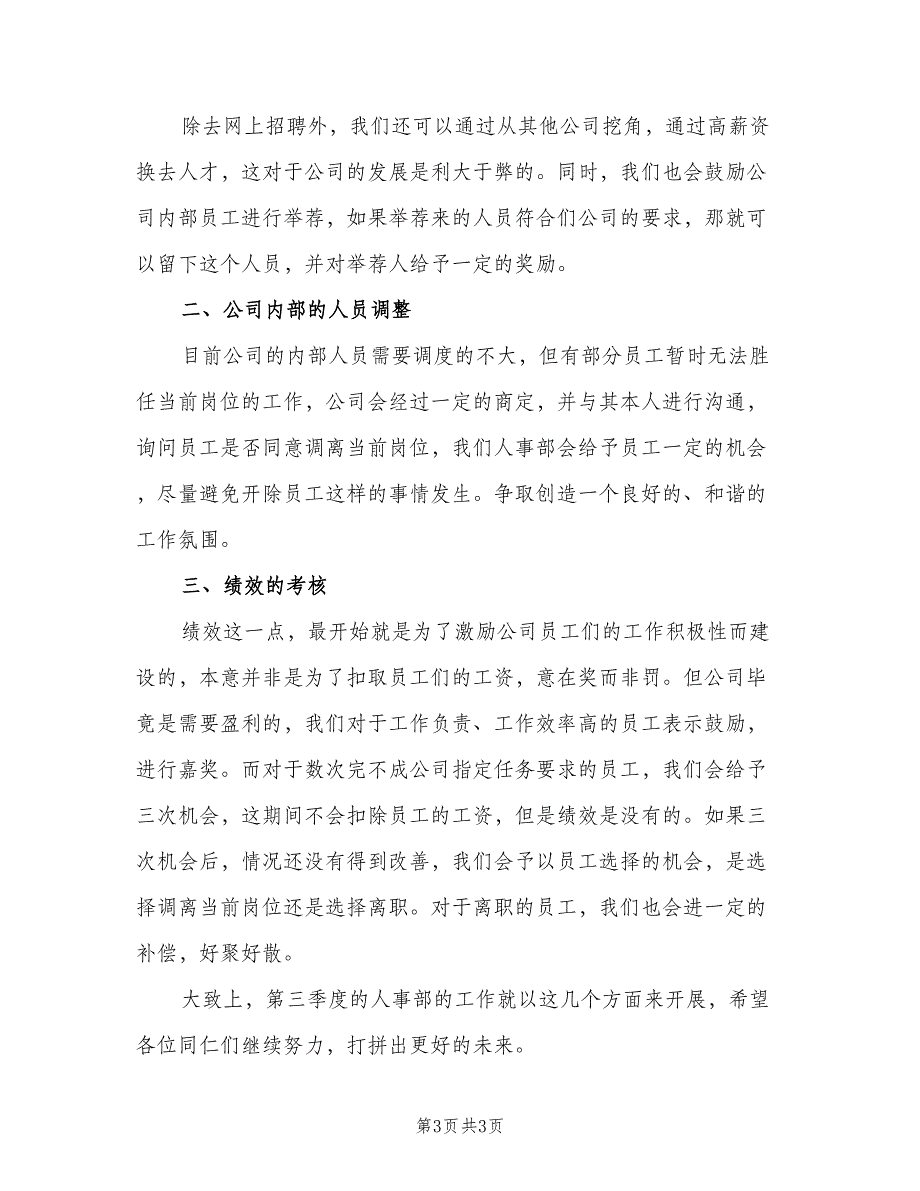 除去网上招聘外，我们还可以通过从其他公司挖角，通过高薪资
换去人才，这对于公司的发展是利大于弊的。同时，我们也会鼓励公
司内部员工进行举荐，如果举荐来的人员符合们公司的要求，那就可
以留下这个人员，并对举荐人给予一定的奖励。
二、公司内部的人员调整
目前公司的内部人员需要调度的不大，但有部分员工暂时无法胜
任当前岗位的工作，公司会经过一定的商定，并与其本人进行沟通，
询问员工是否同意调离当前岗位，我们人事部会给予员工一定的机会
，尽量避免开除员工这样的事情发生。争取创造一个良好的、和谐的
工作氛围。
三、绩效的考核
绩效这一点，最开始就是为了激励公司员工们的工作积极性而建
设的，本意并非是为了扣取员工们的工资，意在奖而非罚。但公司毕
竟是需要盈利的，我们对于工作负责、工作效率高的员工表示鼓励，
进行嘉奖。而对于数次完不成公司指定任务要求的员工，我们会给予
三次机会，这期间不会扣除员工的工资，但是绩效是没有的。如果三
次机会后，情况还没有得到改善，我们会予以员工选择的机会，是选
择调离当前岗位还是选择离职。对于离职的员工，我们也会进一定的
补偿，好聚好散。
大致上，第三季度的人事部的工作就以这几个方面来开展，希望
各位同仁们继续努力，打拼出更好的未来。
第3页 共3页